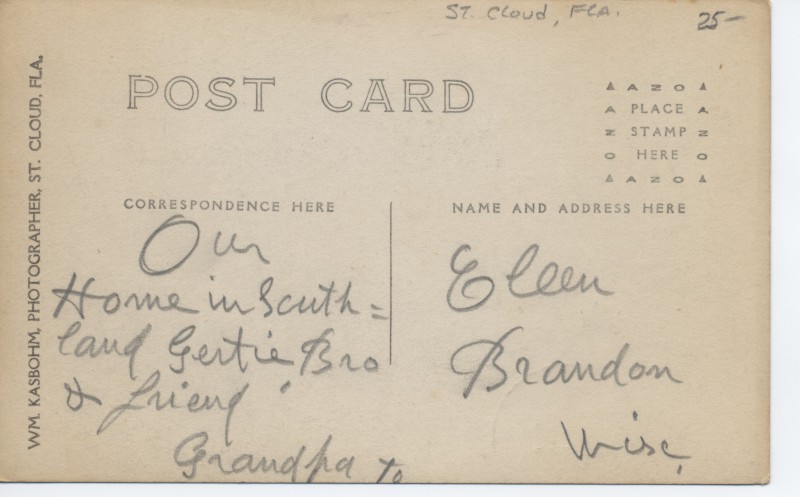 St. Cloud, FLA.
25-
POST CARD
AZO
PLACE
STAMP
HERE
AZO
WM. KASBOHM, PHOTOGRAPHER, ST. CLOUD, FLA.
CORRESPONDENCE HERE
NAME AND ADDRESS HERE
Our
Home in South=
land Gertie Bro
& friend
Grandpa to
Eleen
Brandon
Wisc,